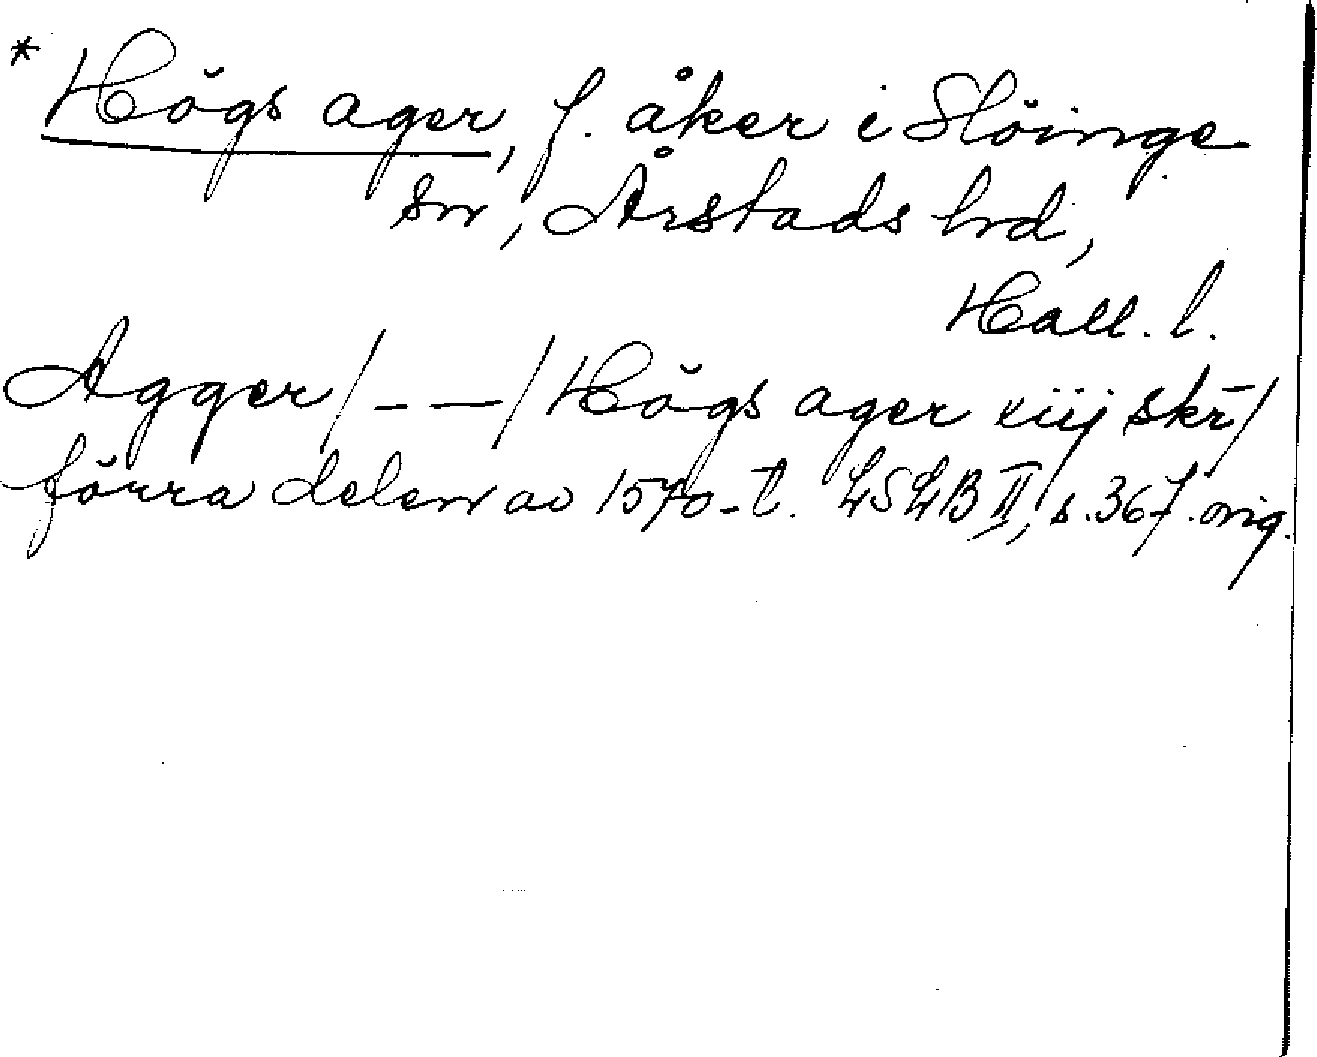 * Högs ager, f. åker i Slöinge
sn, Årstads hd,
Hall. l.
Agger/ – — /Högs ager xiij skr̄/
förra delen av 1570-t. LSLB II, s. 367. orig.